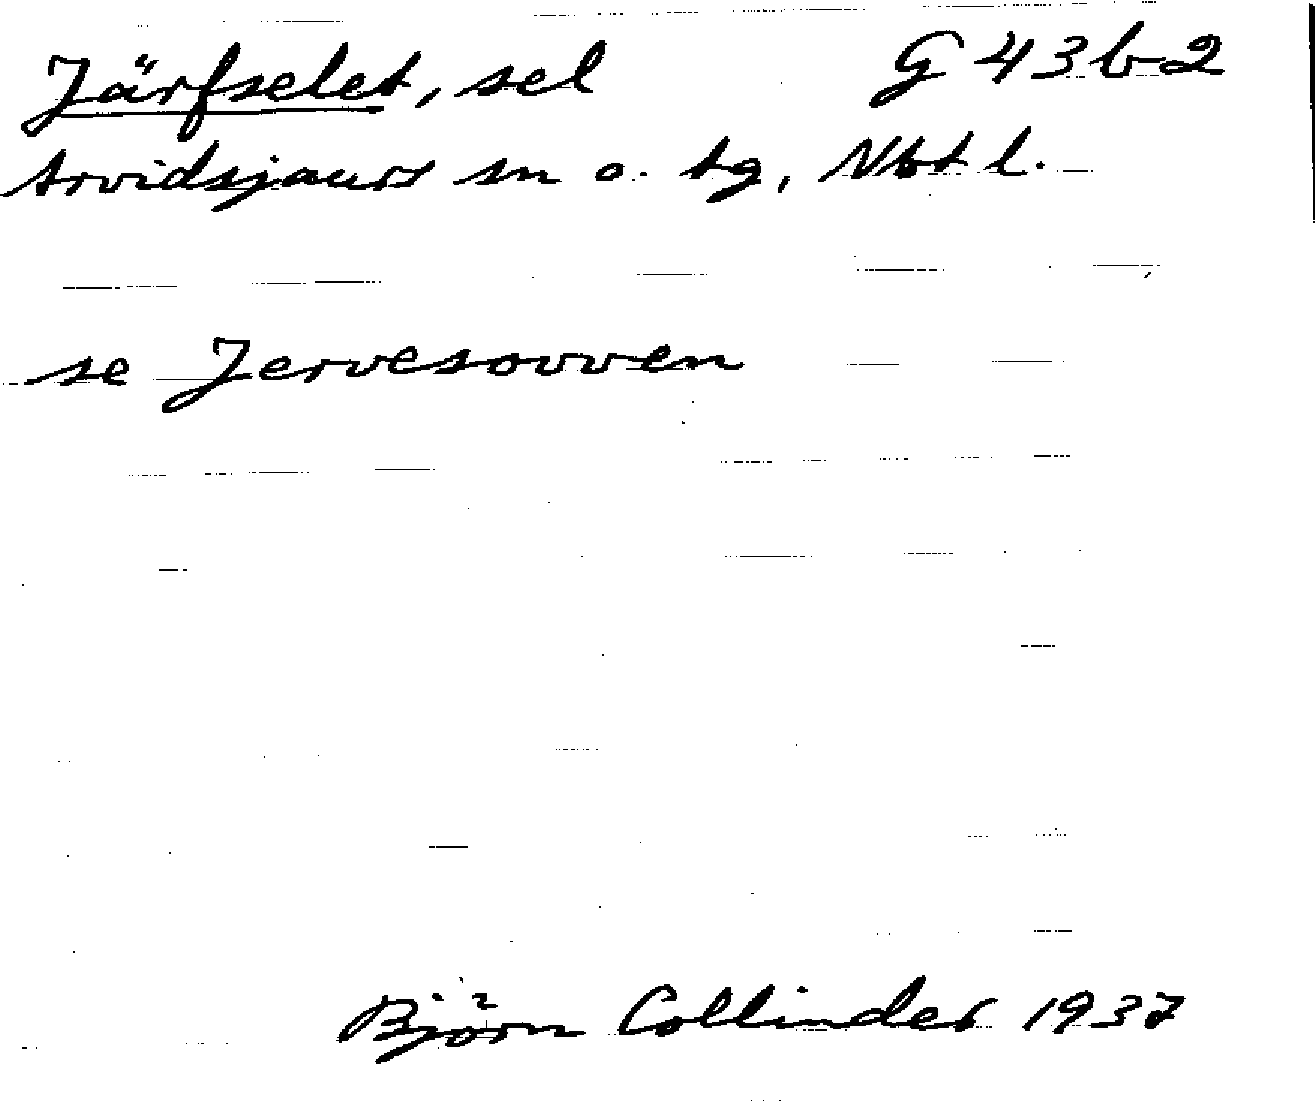 Järfselet, sel G 43 b 2
Arvidsjaurs sn o. tg, Nbt l.
se Jervesovven
Björn Collinder 1937